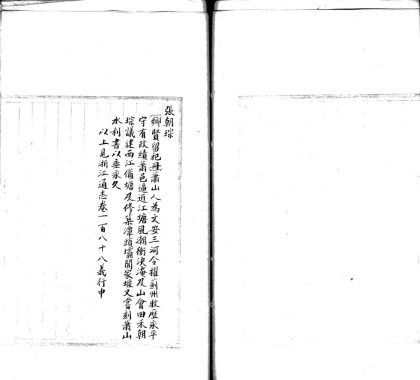 張朝琮
鄉賢留祀冊蕭山人為文安三河令擢薊州牧歷永平
守有政績蕭邑逼近江塘風潮衝決淹及山會田禾朝
琮議建西江備塘及修築潭頭壩聞家堰又嘗刻蕭山
水利書以垂永久
以上見浙江通志卷一百八十八義行中